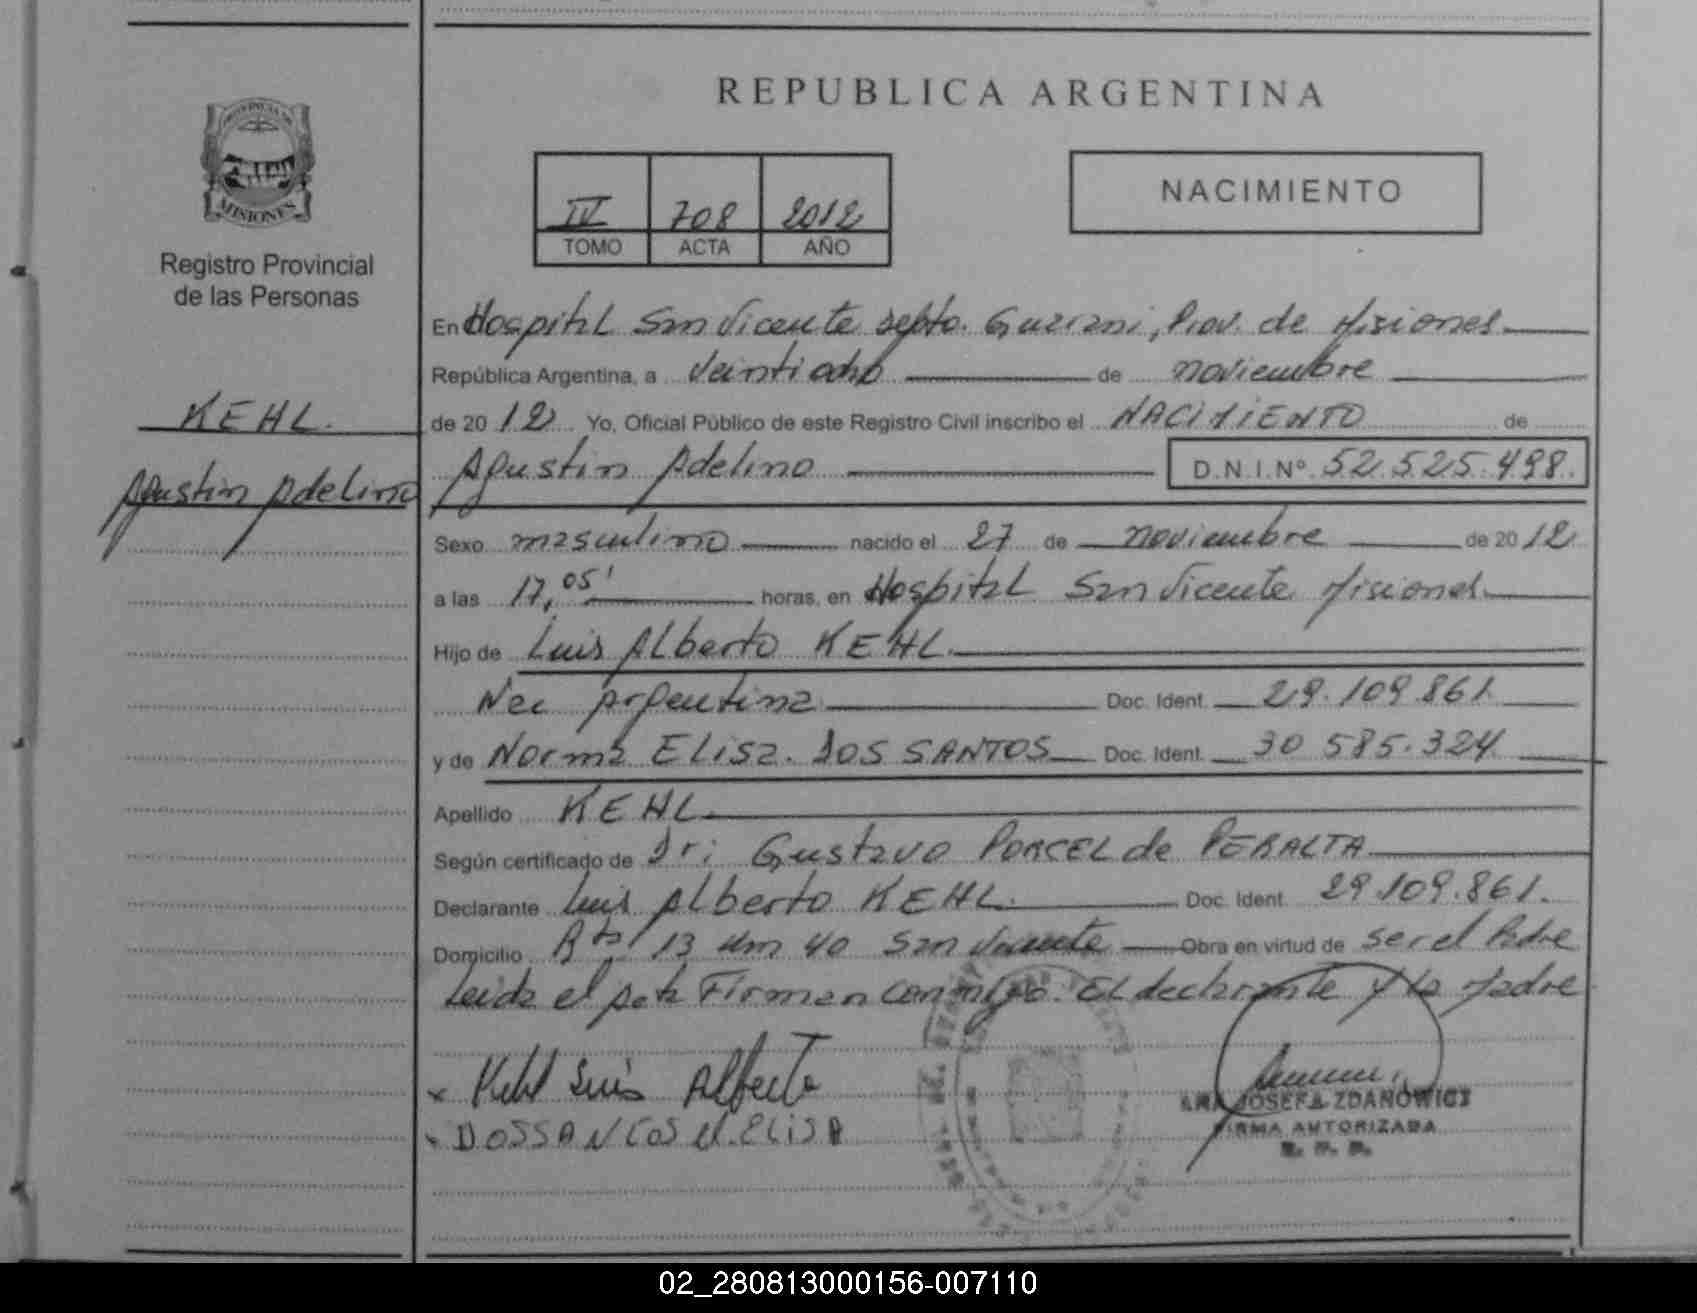 REPUBLICA ARGENTINA
MISIONES
Registro Provincial
de las Personas
IV 708 2012
TOMO ACTA AÑO
NACIMIENTO
KEHL.
Agustin Adelino
En Hospital San Vicente Depto. Guarani, Prov. de Misiones
República Argentina, a veintiocho de noviembre
de 20 12 Yo, Oficial Público de este Registro Civil inscribo el NACIMIENTO de
Agustin Adelino D.N.I.Nº 52.525.498.
Sexo masculino nacido el 27 de noviembre de 20 12
a las 17,05' horas, en Hospital San Vicente Misiones
Hijo de Luis Alberto KEHL.
Nac Argentina Doc. Ident. 29.109.861
y de Norma Elisa. DOS SANTOS Doc. Ident. 30 585.324
Apellido KEHL
Según certificado de Dr: Gustavo PORCEL de PERALTA
Declarante Luis Alberto KEHL. Doc. Ident. 29.109.861.
Domicilio Rta 13 Km 40 San Vicente Obra en virtud de ser el Padre
Leida el Acta Firman conmigo. El declarante y la Madre
x Kehl Luis Alberto
x DOSSANTOS N. ELISA
JOSEFA ZDANOWICZ
FIRMA AUTORIZADA
02_280813000156-007110